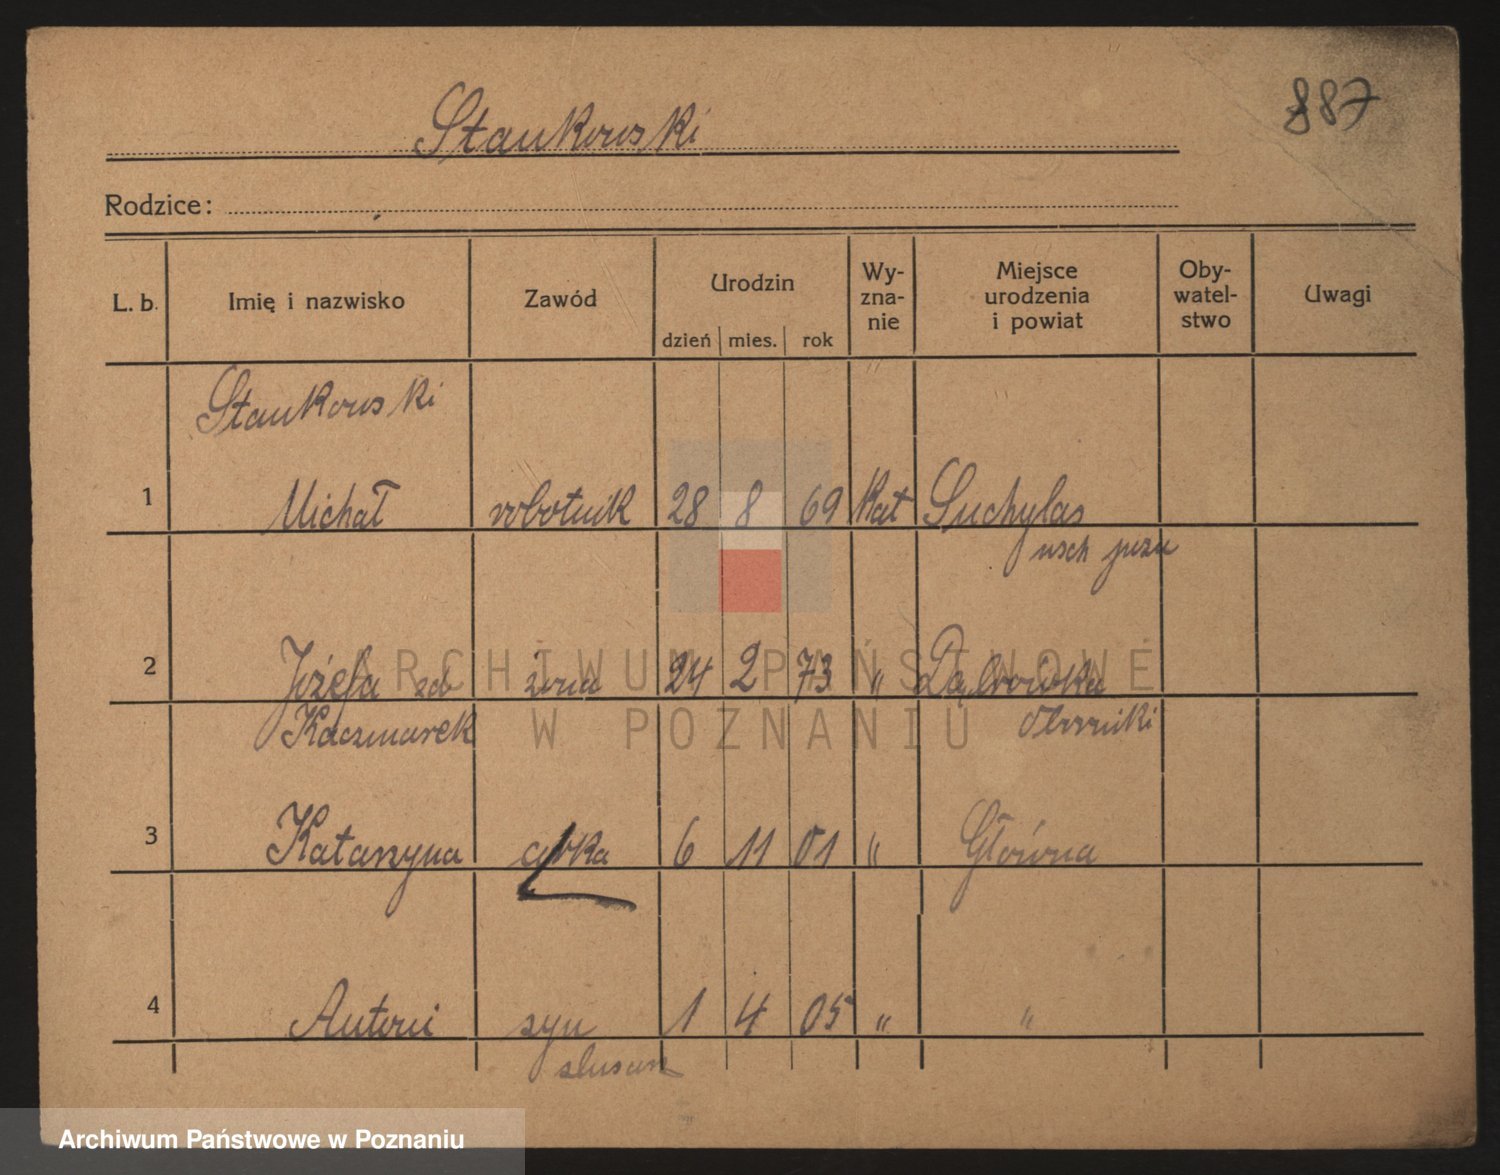 887
Stankowski
Rodzice:
L. b. Imię i nazwisko Zawód Urodzin dzień mies. rok Wy-zna-nie Miejsce urodzenia i powiat Oby-watel-stwo Uwagi
Stankowski
1 Michał robotnik 28 8 69 kat Suchylas
wsch pozn
2 Józefa zd żona 24 2 73 " Dąbrówka
Kaczmarek Oborniki
3 Katarzyna córka 6 11 01 " Główna
4 Antoni syn 1 4 05 " "
ślusarz
ARCHIWUM PAŃSTWOWE
W POZNANIU
Archiwum Państwowe w Poznaniu